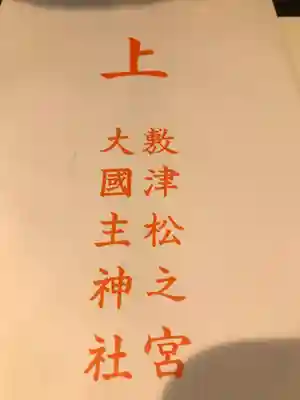 上
敷津松之宮
大國主神社